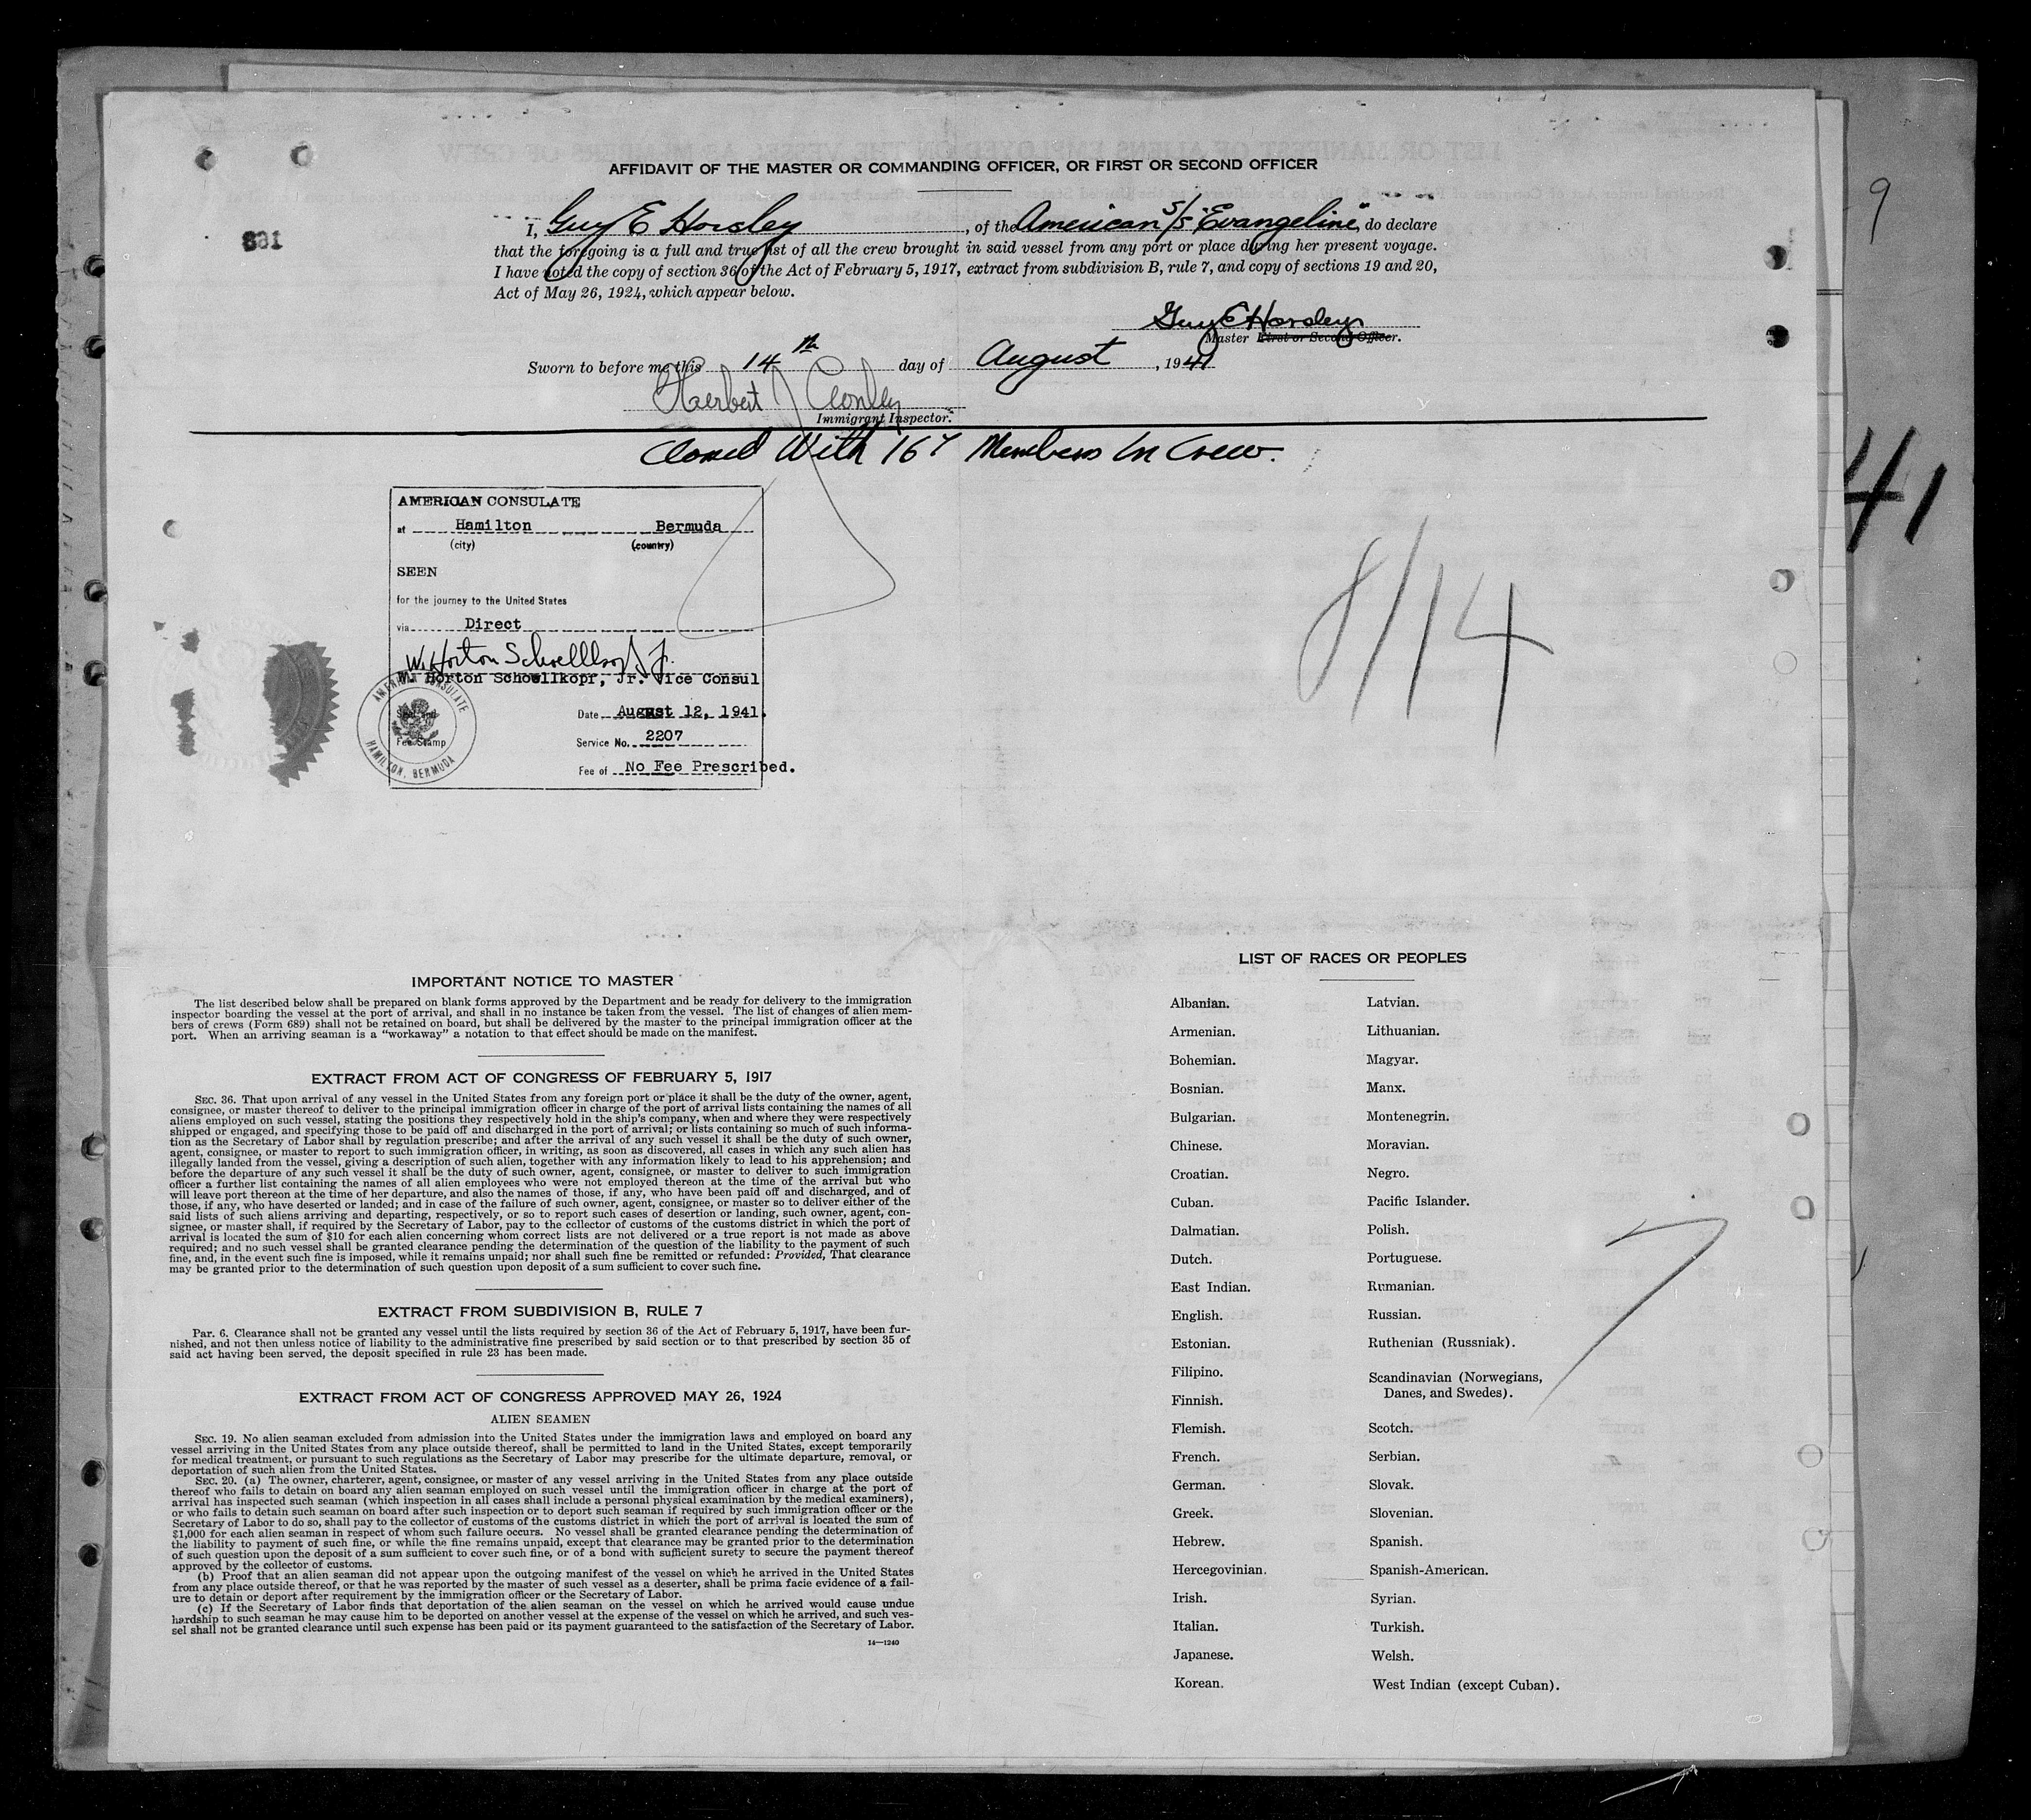 AFFIDAVIT OF THE MASTER OR COMMANDING OFFICER, OR FIRST OR SECOND OFFICER
I, Guy E Horsley, of the American S/S "Evangeline", do declare
that the foregoing is a full and true list of all the crew brought in said vessel from any port or place during her present voyage.
I have noted the copy of section 36 of the Act of February 5, 1917, extract from subdivision B, rule 7, and copy of sections 19 and 20,
Act of May 26, 1924, which appear below.
Guy E Horsley
Master First or Second Officer.
Sworn to before me this 14th day of August, 1941
Herbert J Conley
Immigrant Inspector.
Closed With 167 Members In Crew.
AMERICAN CONSULATE
at Hamilton Bermuda
(city) (country)
SEEN
for the journey to the United States
via Direct
W. Horton Schoellkopf, Jr.
W. Horton Schoellkopf, Jr. Vice Consul
AMERICAN CONSULATE
HAMILTON, BERMUDA
Seal and
Fee Stamp
Date August 12, 1941.
Service No. 2207
Fee of No Fee Prescribed.
8/14
9
41
IMPORTANT NOTICE TO MASTER
The list described below shall be prepared on blank forms approved by the Department and be ready for delivery to the immigration
inspector boarding the vessel at the port of arrival, and shall in no instance be taken from the vessel. The list of changes of alien mem-
bers of crews (Form 689) shall not be retained on board, but shall be delivered by the master to the principal immigration officer at the
port. When an arriving seaman is a "workaway" a notation to that effect should be made on the manifest.
EXTRACT FROM ACT OF CONGRESS OF FEBRUARY 5, 1917
SEC. 36. That upon arrival of any vessel in the United States from any foreign port or place it shall be the duty of the owner, agent,
consignee, or master thereof to deliver to the principal immigration officer in charge of the port of arrival lists containing the names of all
aliens employed on such vessel, stating the positions they respectively hold in the ship's company, when and where they were respectively
shipped or engaged, and specifying those to be paid off and discharged in the port of arrival; or lists containing so much of such informa-
tion as the Secretary of Labor shall by regulation prescribe; and after the arrival of any such vessel it shall be the duty of such owner,
agent, consignee, or master to report to such immigration officer, in writing, as soon as discovered, all cases in which any such alien has
illegally landed from the vessel, giving a description of such alien, together with any information likely to lead to his apprehension; and
before the departure of any such vessel it shall be the duty of such owner, agent, consignee, or master to deliver to such immigration
officer a further list containing the names of all alien employees who were not employed thereon at the time of the arrival but who
will leave port thereon at the time of her departure, and also the names of those, if any, who have been paid off and discharged, and of
those, if any, who have deserted or landed; and in case of the failure of such owner, agent, consignee, or master so to deliver either of the
said lists of such aliens arriving and departing, respectively, or so to report such cases of desertion or landing, such owner, agent, con-
signee, or master shall, if required by the Secretary of Labor, pay to the collector of customs of the customs district in which the port of
arrival is located the sum of $10 for each alien concerning whom correct lists are not delivered or a true report is not made as above
required; and no such vessel shall be granted clearance pending the determination of the question of the liability to the payment of such
fine, and, in the event such fine is imposed, while it remains unpaid; nor shall such fine be remitted or refunded: Provided, That clearance
may be granted prior to the determination of such question upon deposit of a sum sufficient to cover such fine.
EXTRACT FROM SUBDIVISION B, RULE 7
Par. 6. Clearance shall not be granted any vessel until the lists required by section 36 of the Act of February 5, 1917, have been fur-
nished, and not then unless notice of liability to the administrative fine prescribed by said section or to that prescribed by section 35 of
said act having been served, the deposit specified in rule 23 has been made.
EXTRACT FROM ACT OF CONGRESS APPROVED MAY 26, 1924
ALIEN SEAMEN
SEC. 19. No alien seaman excluded from admission into the United States under the immigration laws and employed on board any
vessel arriving in the United States from any place outside thereof, shall be permitted to land in the United States, except temporarily
for medical treatment, or pursuant to such regulations as the Secretary of Labor may prescribe for the ultimate departure, removal, or
deportation of such alien from the United States.
SEC. 20. (a) The owner, charterer, agent, consignee, or master of any vessel arriving in the United States from any place outside
thereof who fails to detain on board any alien seaman employed on such vessel until the immigration officer in charge at the port of
arrival has inspected such seaman (which inspection in all cases shall include a personal physical examination by the medical examiners),
or who fails to detain such seaman on board after such inspection or to deport such seaman if required by such immigration officer or the
Secretary of Labor to do so, shall pay to the collector of customs of the customs district in which the port of arrival is located the sum of
$1,000 for each alien seaman in respect of whom such failure occurs. No vessel shall be granted clearance pending the determination of
the liability to payment of such fine, or while the fine remains unpaid, except that clearance may be granted prior to the determination
of such question upon the deposit of a sum sufficient to cover such fine, or of a bond with sufficient surety to secure the payment thereof
approved by the collector of customs.
(b) Proof that an alien seaman did not appear upon the outgoing manifest of the vessel on which he arrived in the United States
from any place outside thereof, or that he was reported by the master of such vessel as a deserter, shall be prima facie evidence of a fail-
ure to detain or deport after requirement by the immigration officer or the Secretary of Labor.
(c) If the Secretary of Labor finds that deportation of the alien seaman on the vessel on which he arrived would cause undue
hardship to such seaman he may cause him to be deported on another vessel at the expense of the vessel on which he arrived, and such ves-
sel shall not be granted clearance until such expense has been paid or its payment guaranteed to the satisfaction of the Secretary of Labor.
14—1240
LIST OF RACES OR PEOPLES
Albanian.
Armenian.
Bohemian.
Bosnian.
Bulgarian.
Chinese.
Croatian.
Cuban.
Dalmatian.
Dutch.
East Indian.
English.
Estonian.
Filipino.
Finnish.
Flemish.
French.
German.
Greek.
Hebrew.
Hercegovinian.
Irish.
Italian.
Japanese.
Korean.
Latvian.
Lithuanian.
Magyar.
Manx.
Montenegrin.
Moravian.
Negro.
Pacific Islander.
Polish.
Portuguese.
Rumanian.
Russian.
Ruthenian (Russniak).
Scandinavian (Norwegians,
Danes, and Swedes).
Scotch.
Serbian.
Slovak.
Slovenian.
Spanish.
Spanish-American.
Syrian.
Turkish.
Welsh.
West Indian (except Cuban).